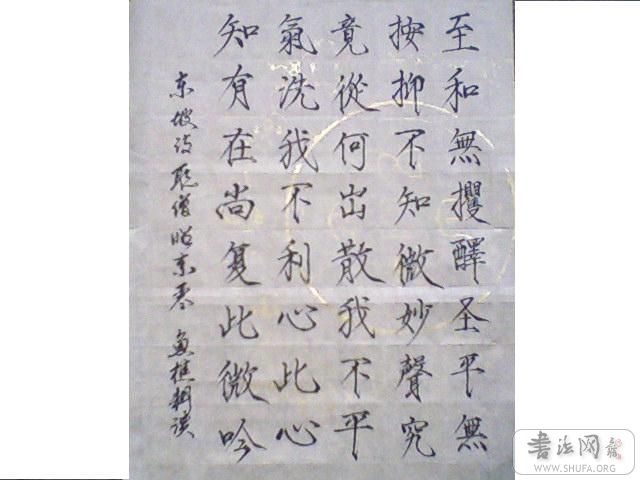 至和無攫醳圣平無
按抑不知微妙聲究
竟從何出散我不平
氣洗我不利心此心
知有在尚复此微吟
东坡诗聽僧昭素琴 魚樵耕读
書法网
WWW.SHUFA.ORG